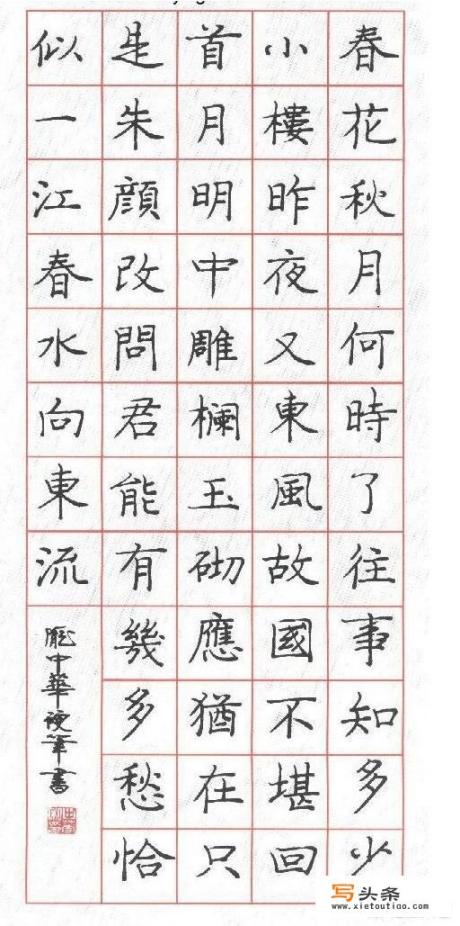 春花秋月何時了往事知多少
小樓昨夜又東風故國不堪回
首月明中雕欄玉砌應猶在只
是朱顔改問君能有幾多愁恰
似一江春水向東流
龐中華硬筆書
写头条
www.xietoutiao.com